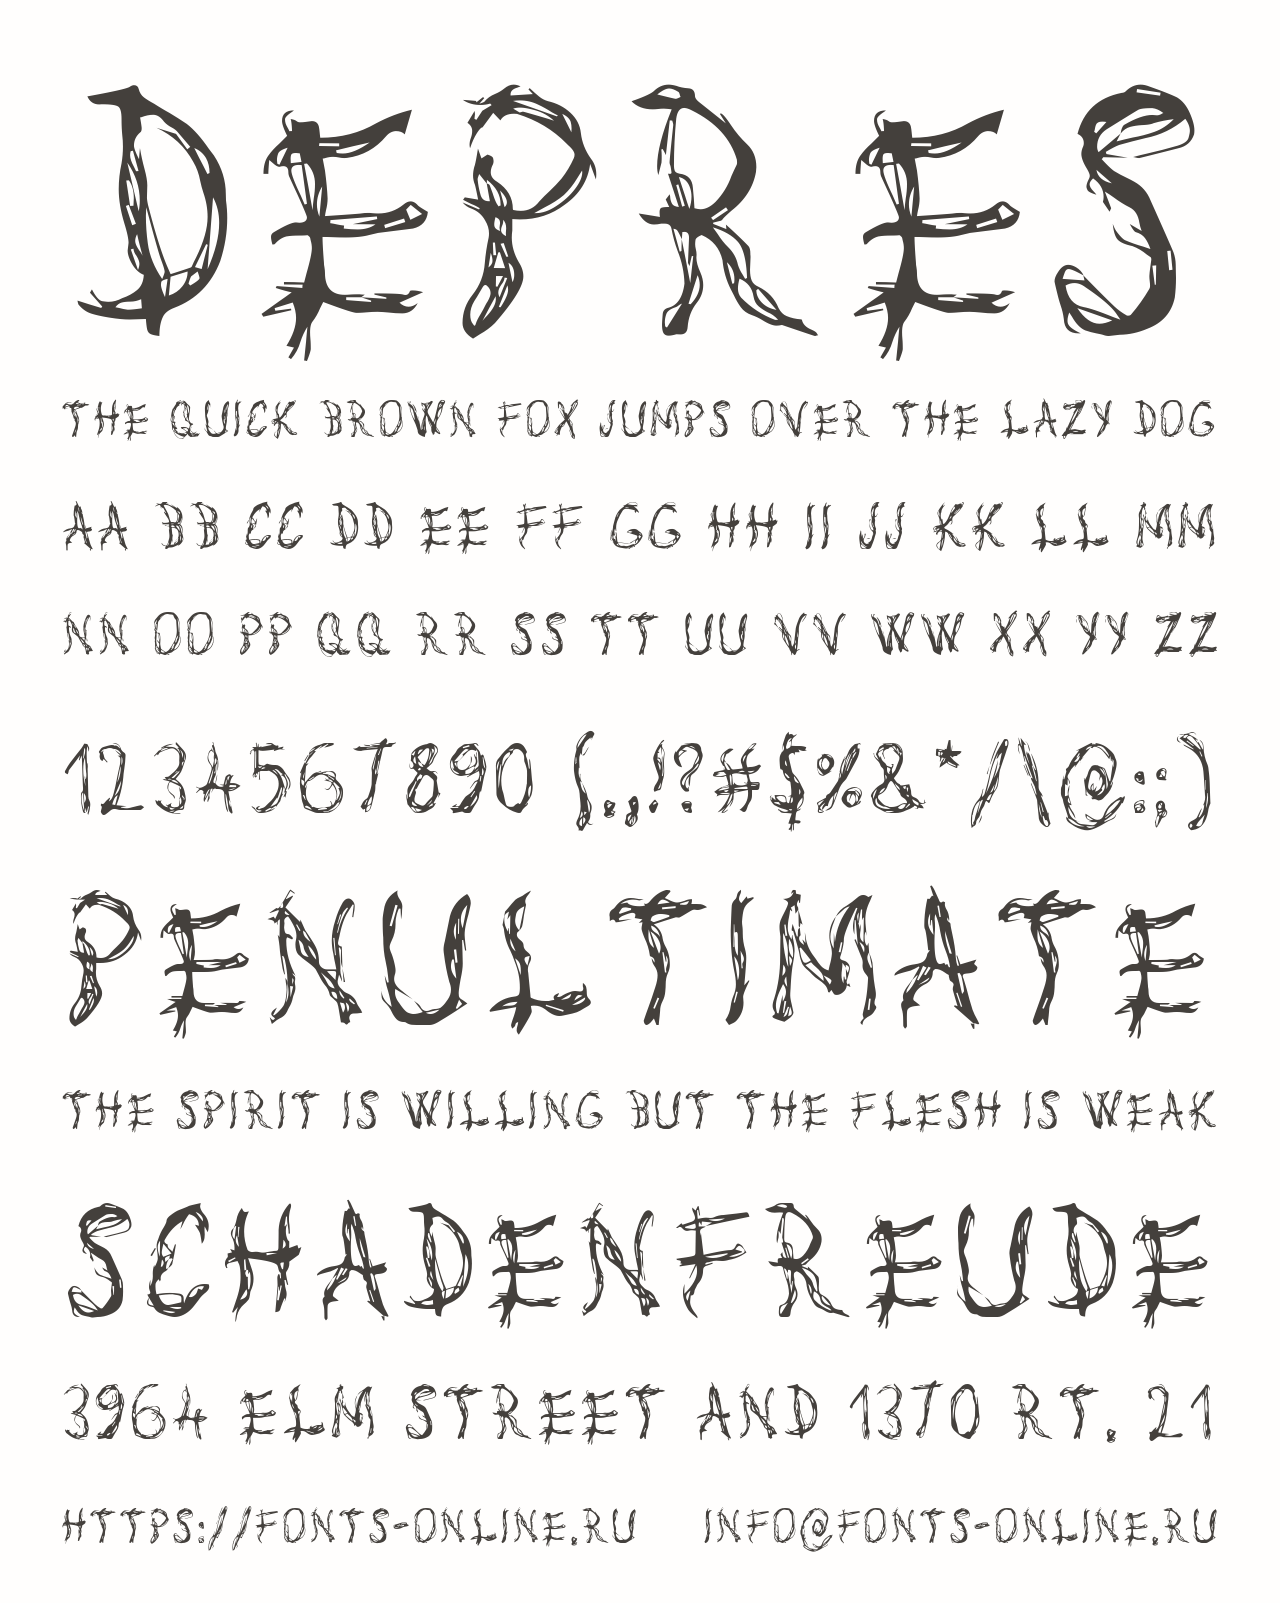 DEPRES
THE QUICK BROWN FOX JUMPS OVER THE LAZY DOG
AA BB CC DD EE FF GG HH II JJ KK LL MM
NN OO PP QQ RR SS TT UU VV WW XX YY ZZ
1234567890 (.,!?#$%&*/\@:;)
PENULTIMATE
THE SPIRIT IS WILLING BUT THE FLESH IS WEAK
SCHADENFREUDE
3964 ELM STREET AND 1370 RT. 21
HTTPS://FONTS-ONLINE.RU INFO@FONTS-ONLINE.RU